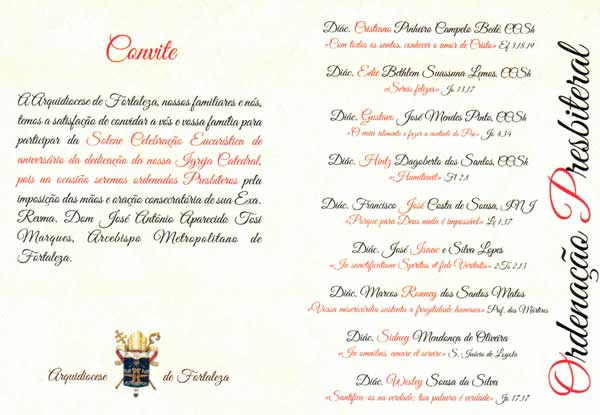 Convite
A Arquidiocese de Fortaleza, nossos familiares e nós,
temos a satisfação de convidar a vós e vossa família para
participar da Solene Celebração Eucarística de
aniversário da dedicação da nossa Igreja Catedral,
pois na ocasião seremos ordenados Presbíteros pela
imposição das mãos e oração consecratória de sua Exa.
Revma. Dom José Antônio Aparecido Tosi
Marques, Arcebispo Metropolitano de
Fortaleza.
Arquidiocese de Fortaleza
Diác. Cristiano Pinheiro Campelo Bedê, CCSh
«Com todos os santos, conhecer o amor de Cristo» Ef 3,18.19
Diác. Edie Bethlem Suassuna Lemos, CCSh
«Sereis felizes» Jo 13,17
Diác. Gustavo José Mendes Pinto, CCSh
«O meu alimento é fazer a vontade do Pai» Jo 4,34
Diác. Hintz Dagoberto dos Santos, CCSh
«Humiliavit» Fl 2,8
Diác. Francisco José Costa de Sousa, FNJ
«Porque para Deus nada é impossível» Lc 1,37
Diác. José Isaac e Silva Lopes
«In sanctificatione Spiritus et fide Veritatis» 2Ts 2,13
Diác. Marcos Ronney dos Santos Matos
«Vossa misericórdia sustenta a fragilidade humana» Pref. dos Mártires
Diác. Sidney Mendonça de Oliveira
«In omnibus, amare et servire» S. Inácio de Loyola
Diác. Wesley Sousa da Silva
«Santifica-os na verdade; tua palavra é verdade» Jo 17,17
Ordenação Presbiteral